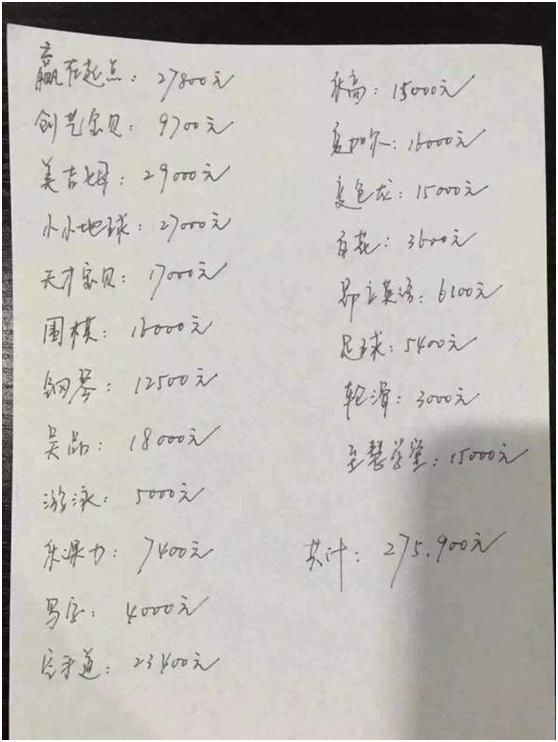 赢在起点：27800元
创艺宝贝：9700元
美吉姆：29000元
小小地球：27000元
天才宝贝：17000元
围棋：16000元
钢琴：12500元
：18000元
游泳：5000元
：7400元
写字：4000元
空手道：23400元
乐高：15000元
：16000元
变色龙：15000元
：3600元
昂立英语：6100元
足球：5400元
轮滑：3000元
至慧学堂：15000元
共计：275.900元